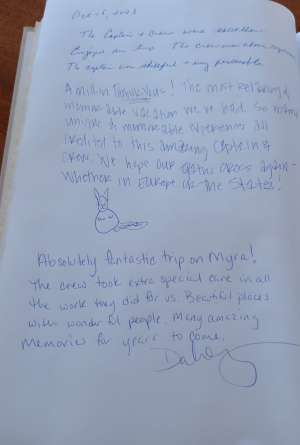 The Captain & Crew were excellent.
Enjoyed our trip. The crew was above
The captain was skillful & very personable.
A million Thank yous! The most relaxing &
memorable vacation we've had. So many
unique & memorable experiences all
credited to this amazing Captain &
crew. We hope our paths cross again -
whether in Europe or the States!
Absolutely fantastic trip on Myra!
The crew took extra special care in all
the work they did for us. Beautiful places
with wonderful people. Many amazing
memories for years to come.